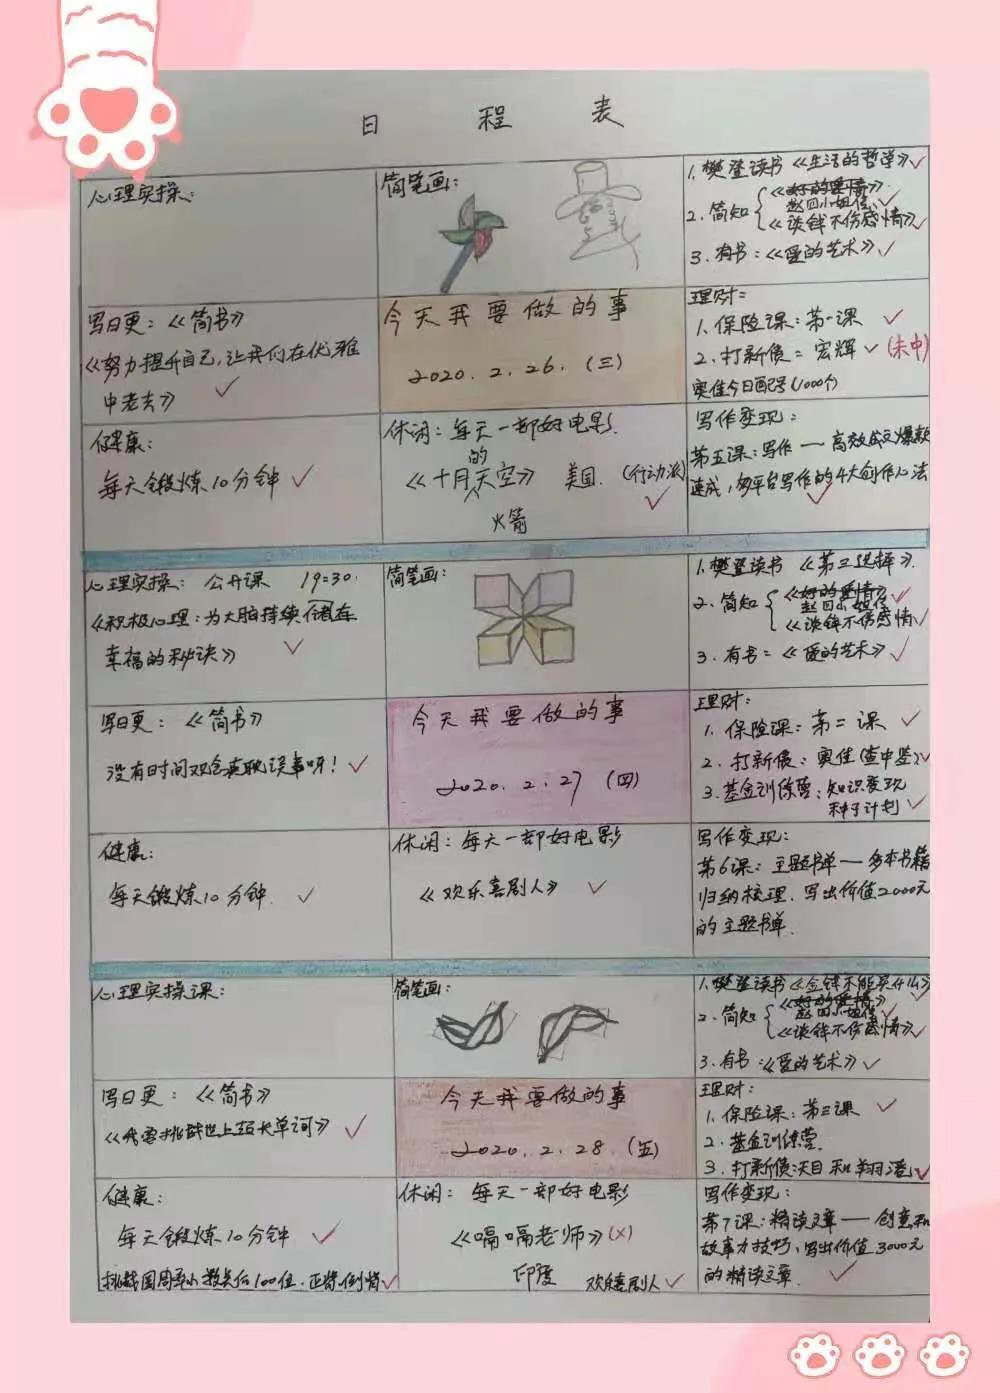 日 程 表
心理实操:
简笔画:
1.樊登读书《生活的哲学》✓
2.简知
赵四小姐传 ✓
《谈钱不伤感情》✓
3.有书:《爱的艺术》✓
写日更:《简书》
《努力提升自己,让我们在优雅
中老去》 ✓
今天我要做的事
2020.2.26.(三)
理财:
1.保险课:第一课 ✓
2.打新债:宏辉 ✓(未中)
奥佳今日配号(1000个)
健康:
每天锻炼10分钟 ✓
休闲:每天一部好电影.
《十月的天空》 美国.(行动派) ✓
火箭
写作变现:
第五课:写作——高效成文爆款
速成,多平台写作的4大创作心法 ✓
心理实操:公开课 19:30.
《积极心理:为大脑持续储存
幸福的秘诀》 ✓
简笔画:
1.樊登读书《第三选择》.
2.简知
《好的爱情》 ✓
赵四小姐传
《谈钱不伤感情》 ✓
3.有书:《爱的艺术》✓
写日更:《简书》
没有时间观念真耽误事呀! ✓
今天我要做的事
2020.2.27 (四)
理财:
1.保险课:第二课 ✓
2.打新债:奥佳(查中签)✓
3.基金训练营:知识变现
种子计划 ✓
健康:
每天锻炼10分钟. ✓
休闲:每天一部好电影
《欢乐喜剧人》 ✓
写作变现:
第6课:主题书单——多本书籍
归纳梳理.写出价值2000元
的主题书单.
心理实操课:
简笔画:
1.樊登读书《金钱不能买什么》
2.简知
赵四小姐传 ✓
《谈钱不伤感情》✓
3.有书:《爱的艺术》✓
写日更:《简书》
《我要挑战世上最长单词》 ✓
今天我要做的事
2020.2.28.(五)
理财:
1.保险课:第三课 ✓
2.基金训练营.
3.打新债:天目和翔港 ✓
健康:
每天锻炼10分钟 ✓
挑战圆周率小数点后100位.正背倒背 ✓
休闲:每天一部好电影
《嗝嗝老师》(×)
印度 欢乐喜剧人 ✓
写作变现:
第7课:精读文章——创意和
故事力技巧,写出价值3000元
的精读文章. ✓